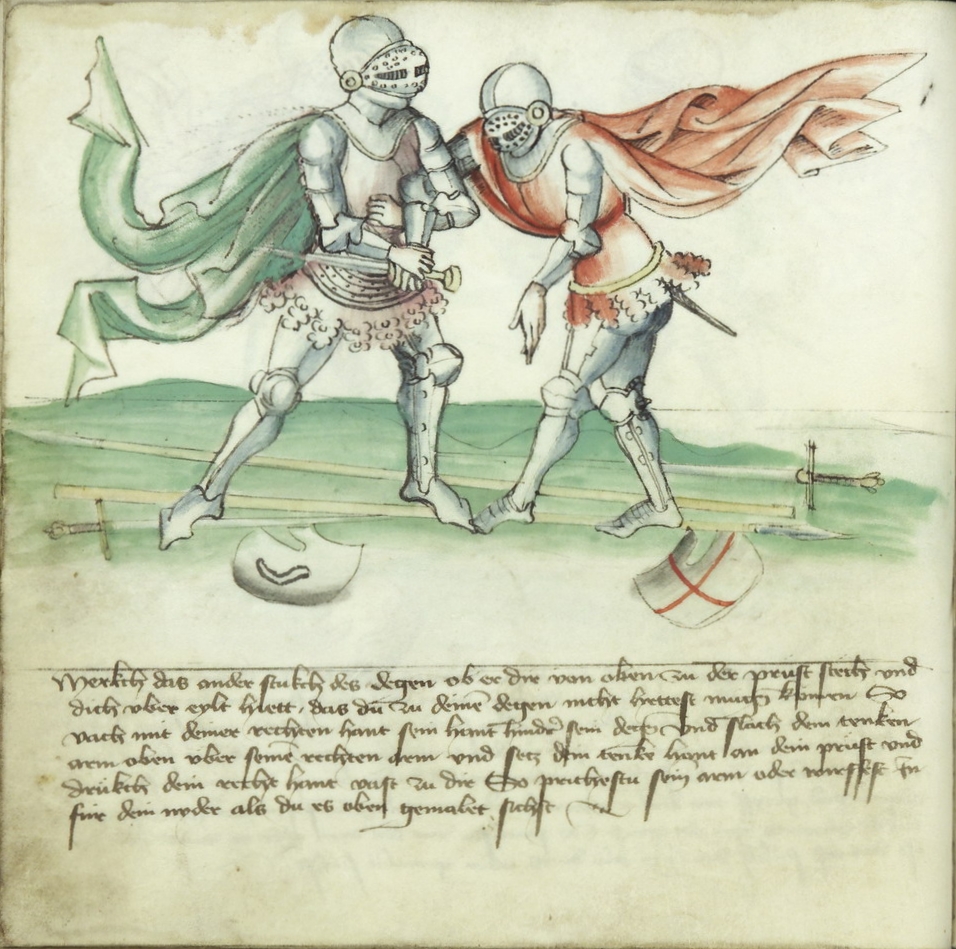 Merkch das ander stukch des degen ob er dir von oben zu der prust stech und
dich vber eylt hiett das dū zu deinē degen nicht hettest mugñ komen So
vach mit deiner rechten hant sein hant hindꝛ sein degñ und slach dein tenken
arm oben vber seinē rechten arm und setz dein tenke hant an dein prust und
drukch dein rechte hant vast zu dir So prichestu sein arm oder wirffest In
fur dein nyder als du es oben gemalet sichst